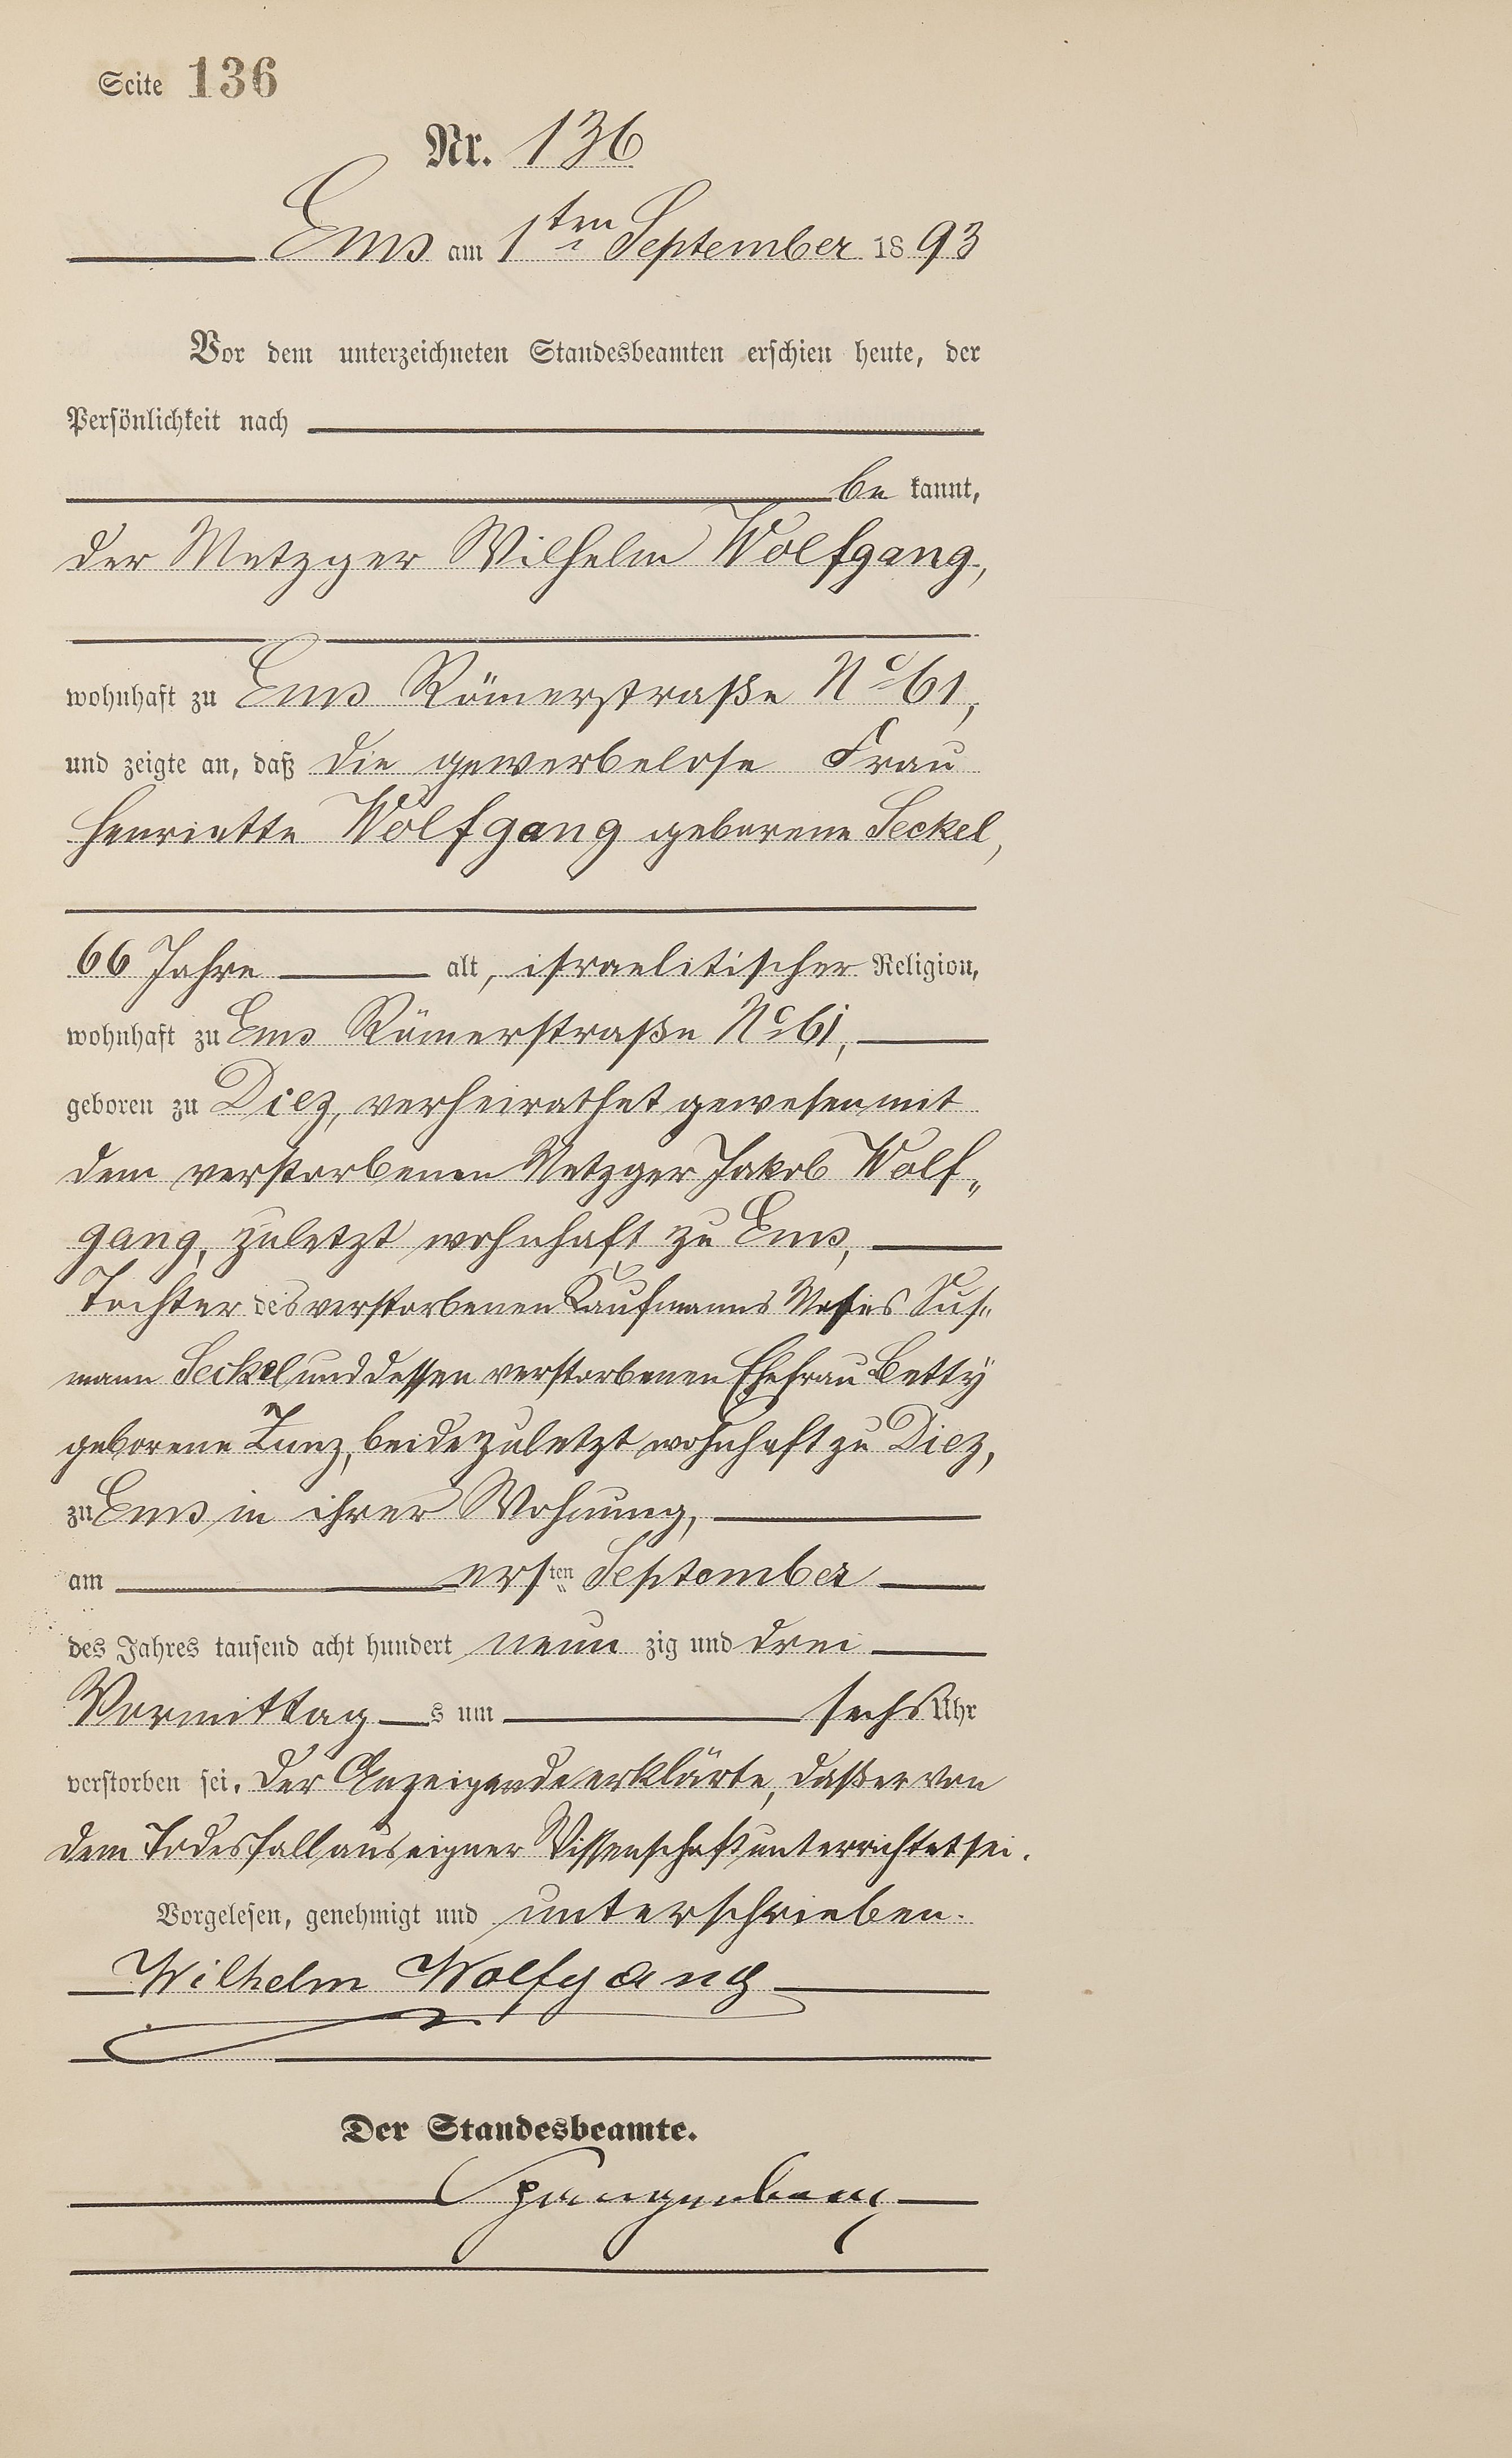 Seite 136
Nr. 136
Ems am 1ten September 1893
Vor dem unterzeichneten Standesbeamten erschien heute, der
Persönlichkeit nach
be kannt,
der Metzger Wilhelm Wolfgang,
wohnhaft zu Ems Römerstraße No 61,
und zeigte an, daß die gewerbelose Frau
Henriette Wolfgang geborene Seckel,
66 Jahre alt, israelitischer Religion,
wohnhaft zu Ems Römerstraße No 61,
geboren zu Diez, verheirathet gewesen mit
dem verstorbenen Metzger Jakob Wolf„
gang, zuletzt wohnhaft zu Ems,
Tochter des verstorbenen Kaufmanns Moses Sus„
mann Seckel und dessen verstorbenen Ehefrau Betty
geborene beide zuletzt wohnhaft zu Diez,
zu Ems in ihrer Wohnung,
am ersten September
des Jahres tausend acht hundert neun zig und drei
Vormittag s um sechs Uhr
verstorben sei. Der Anzeigende erklärte, daß er von
dem Todesfall aus eigner Wissenschaft unterrichtet sei.
Vorgelesen, genehmigt und unterschrieben.
Wilhelm Wolfgang
Der Standesbeamte.
Spangenberg